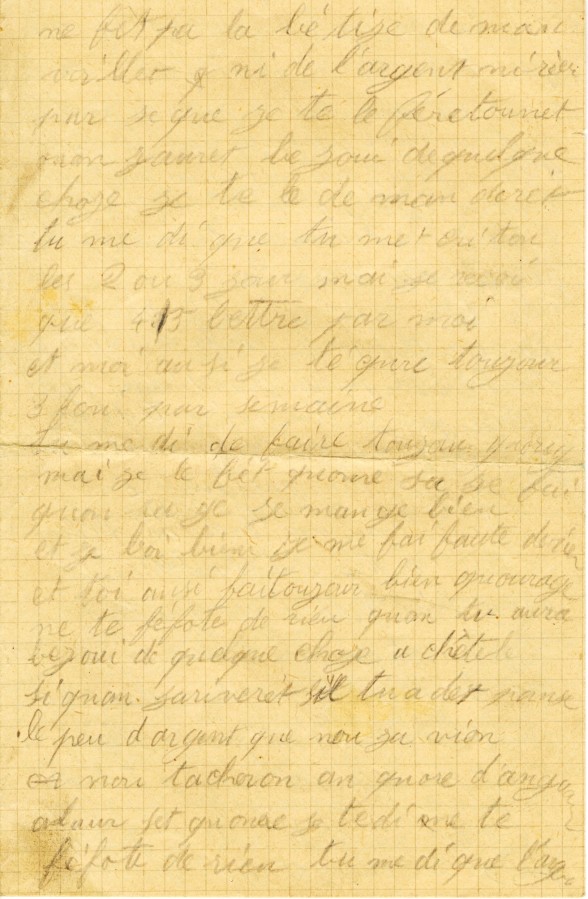 ne fet pa la bétize de man
veiller ni de l'argent ni rien
par se que se te le féretournet
quan jauret bezoui de quelque
choze je te le demanderét
tu me di que tu met ecri tou
les 2 ou 3 jour mai je recoi
que 4 15 lettre par moi
et moi ausi je té qure toujour
3 foui par semaine
tu me di de faire toujour
mai je le fet quome sa se fai
quon sa je je mange bien
et je boi bien je me fai faute de rien
et toi ausi fai toujour bien quourage
ne te féfote de rien quan tu aura
bezoui de quaque choze achètele
si quan jariverét sil tu a dépansé
le peu d'argent que nou javion
nou tacheron an quore d'angagner
alaur set quome je tedi ne te
féfote de rien tu me di que l'argen